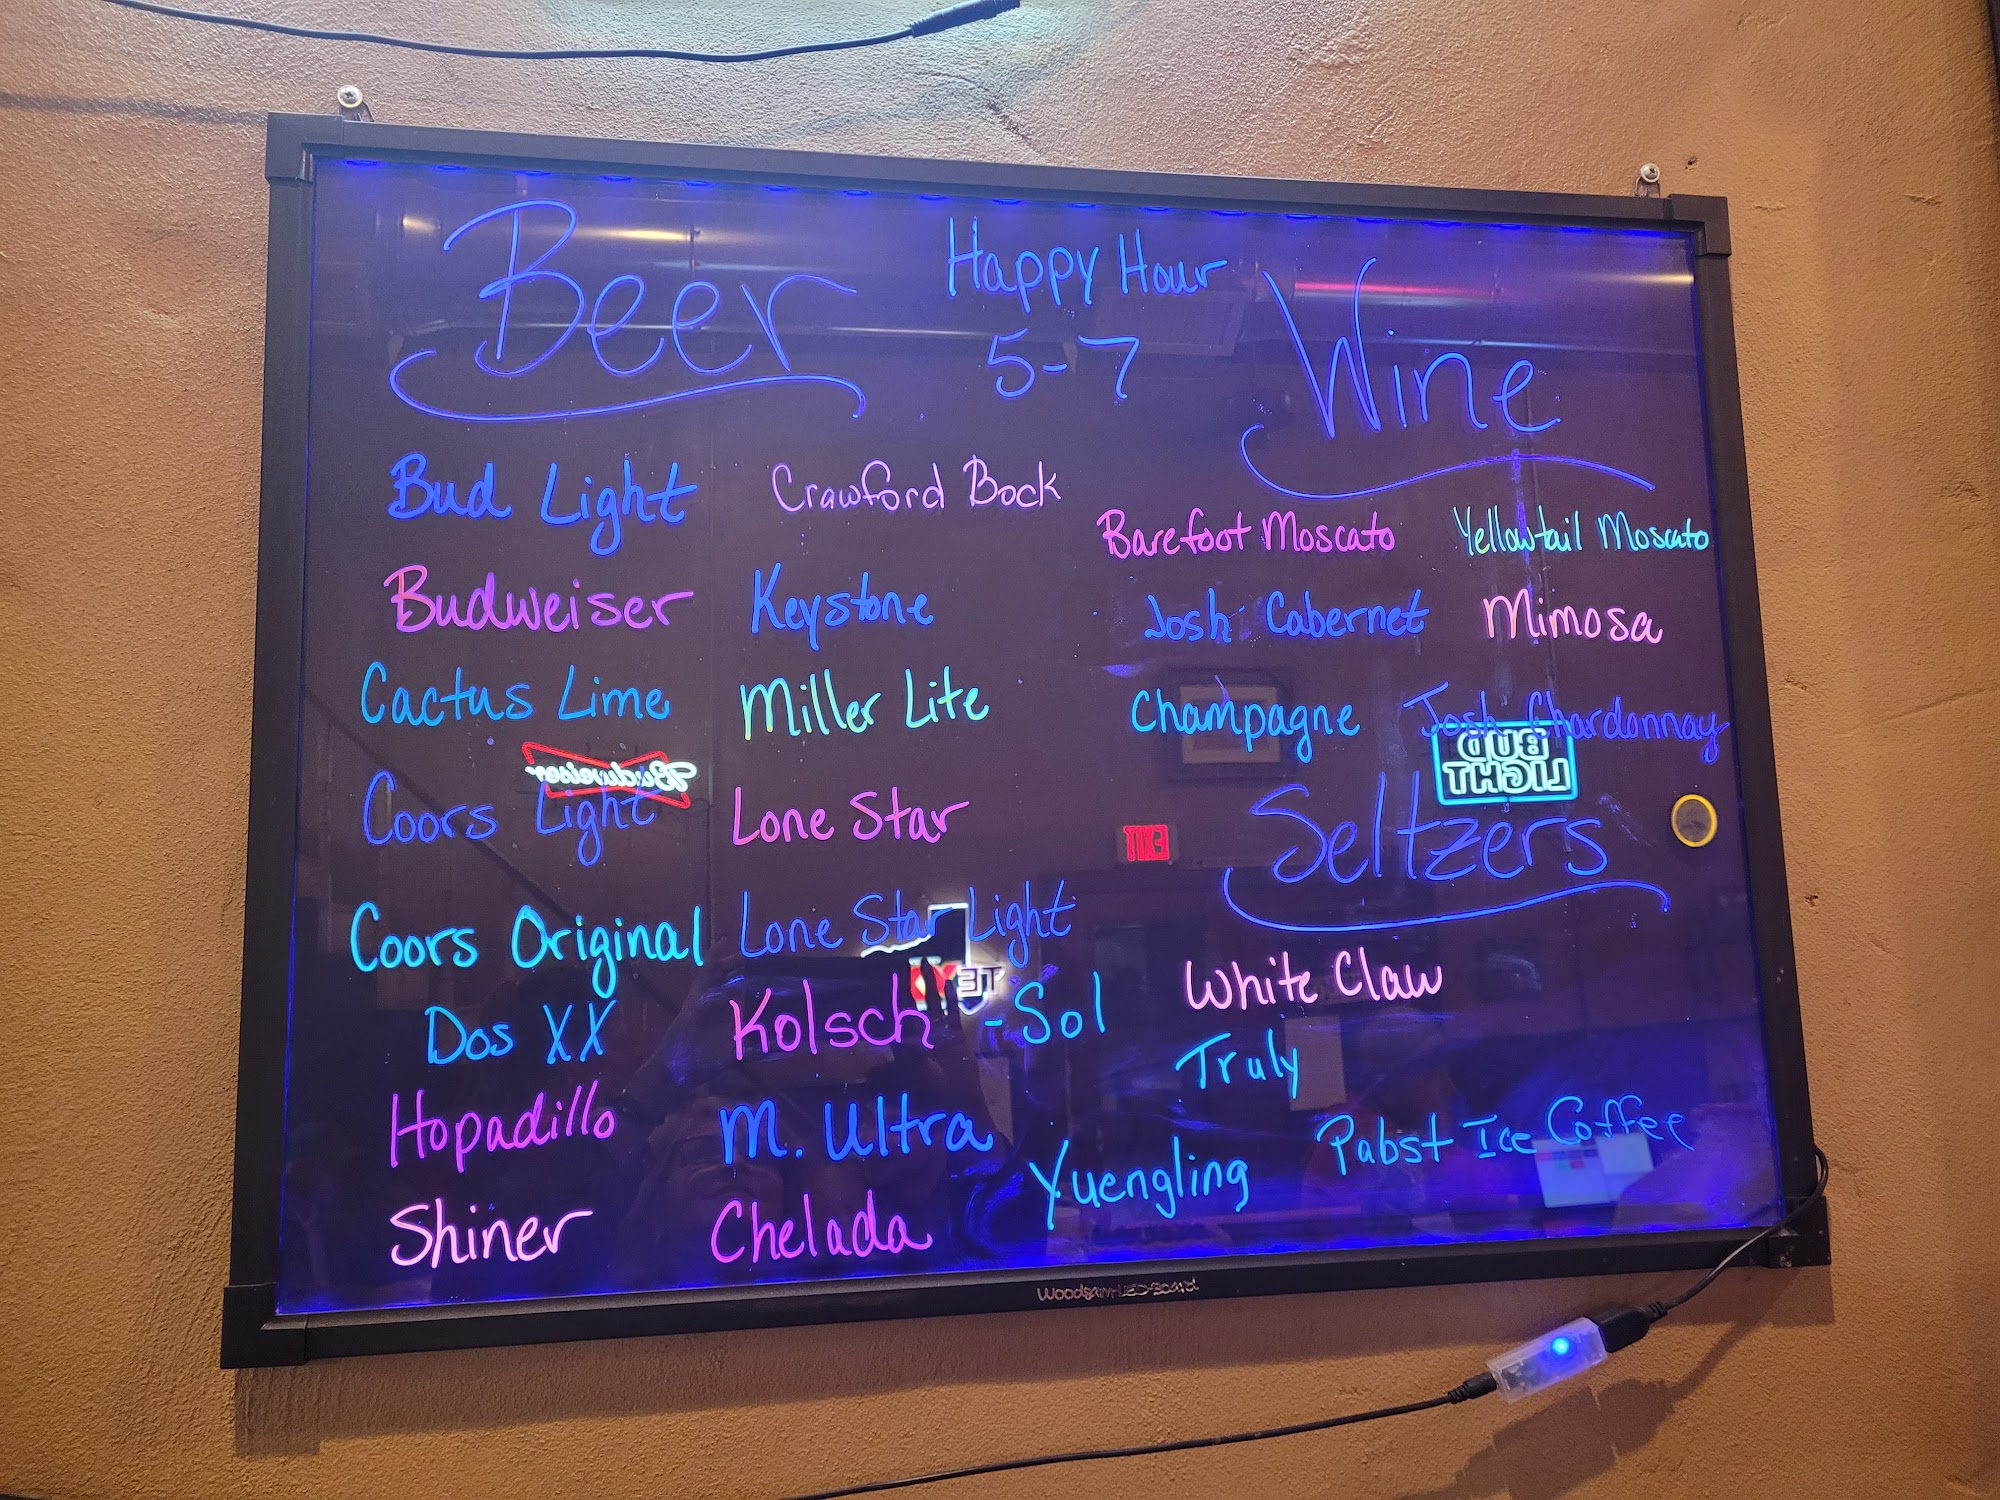 Beer
Happy Hour
5-7
Bud Light
Crawford Bock
Budweiser
Keystone
Cactus Lime
Miller Lite
Coors Light
Lone Star
Coors Original
Lone Star Light
Dos XX
Kolsch
-Sol
Hopadillo
M. Ultra
Yuengling
Shiner
Chelada
Wine
Barefoot Moscato
Yellowtail Moscato
Josh Cabernet
Mimosa
Champagne
Josh Chardonnay
Seltzers
White Claw
Truly
Pabst Ice Coffee
Budweiser
BUD
LIGHT
EXIT
Woodsam-LED-Board